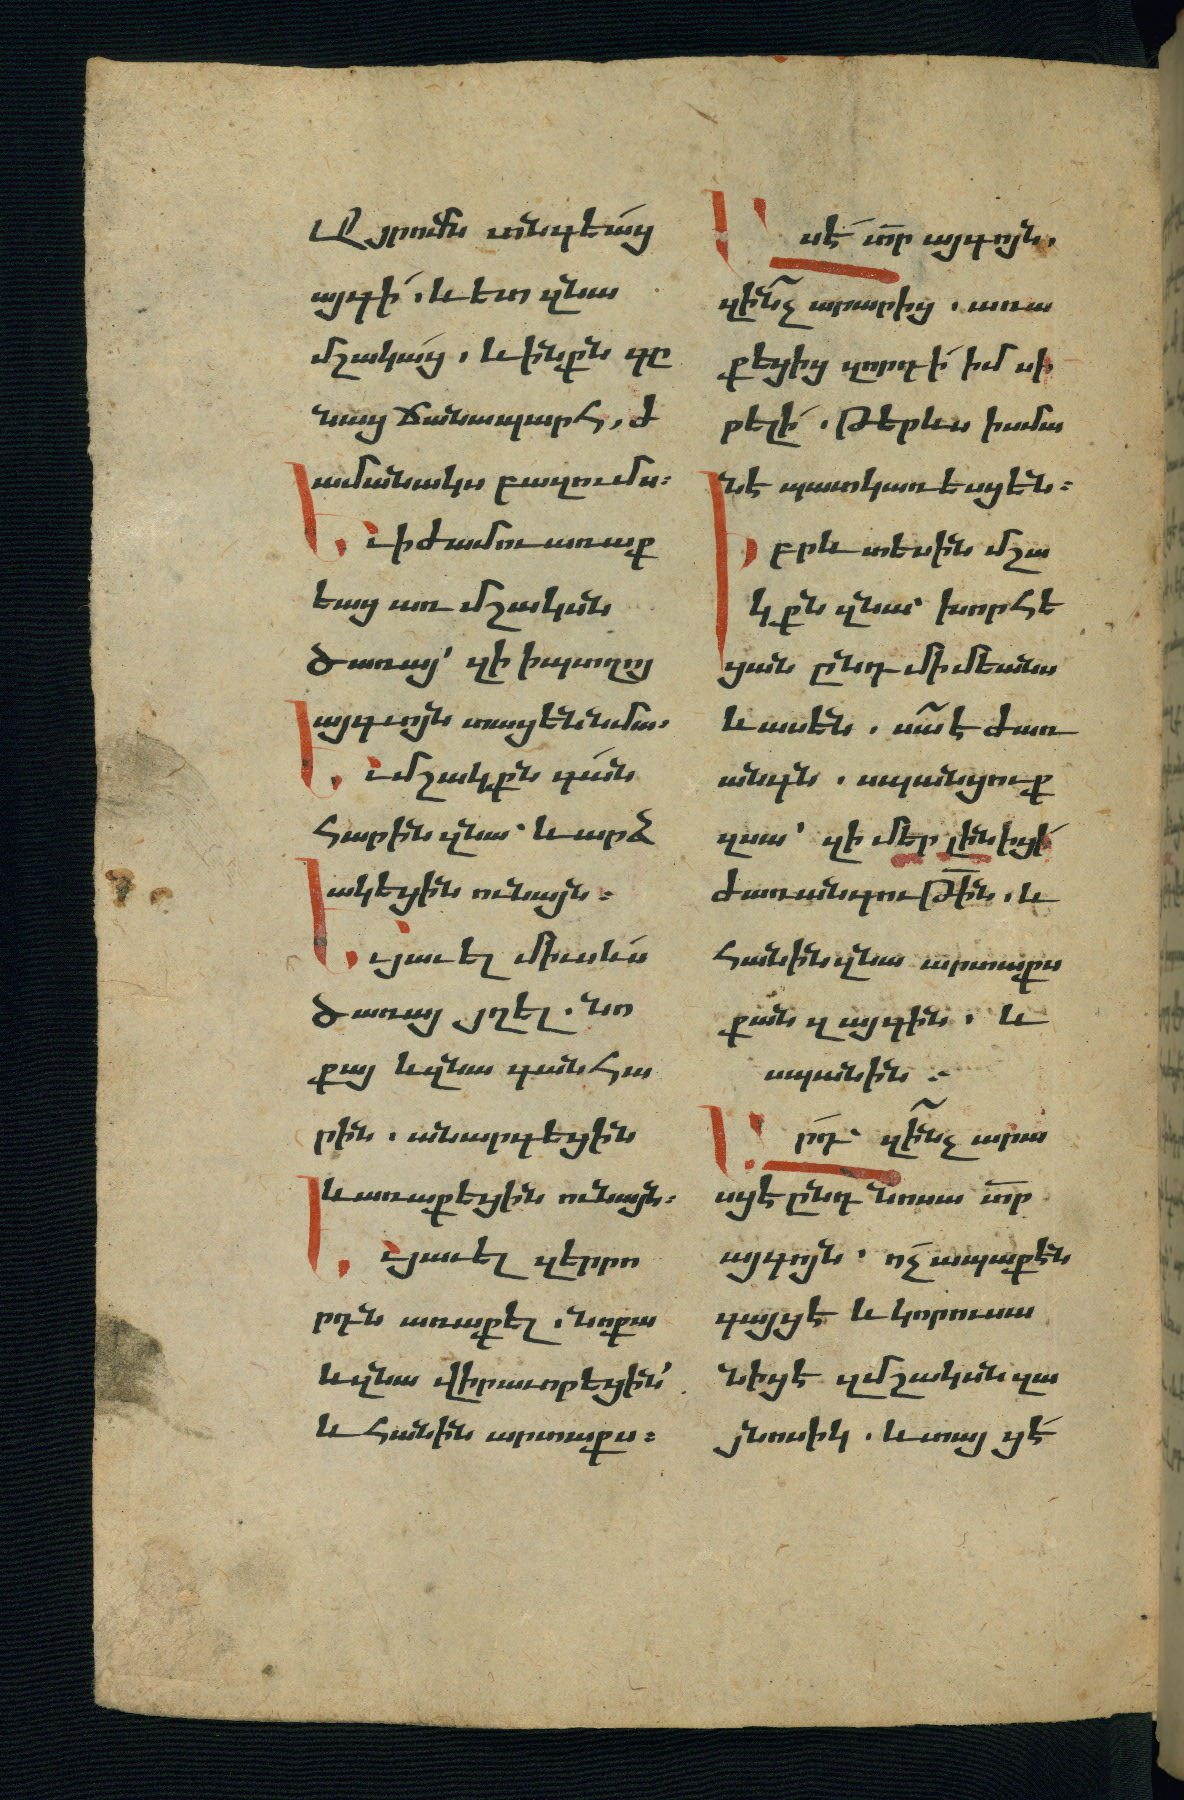 Այրումն տնգեաց
այգի . և ետ զնա
մշակաց . և ինքն գը
նաց ճանապարհ, ժ
ամանակս բազումս :
Եւ ի ժամու առաք
եաց առ մշակսն
ծառայ՝ զի ի պտղոյ
այգւոյն տացեն նմա .
Եւ մշակքն գան
հարին զնա՝ և արձ
ակեցին ունայն :
Եւ յաւել միւսևս
ծառայ յղել . նո
քայ և զնա գանհա
րին . անարգեցին
և առաքեցին ունայն :
Եւ յաւել զերրո
րդն առաքել . նոքա
և զնա վիրաւորեցին՝
և հանին արտաքս :
Ասէ տր այգոյն .
զինչ արարից . առա
քեցից զորդի իմ սի
րելի . Թերևս իամա
նէ պատկառեսցեն :
Իբրև տեսին մշա
կքն զնա՝ խորհե
ցան ընդ միմեանս
և ասեն . սա է ժառ
անգն . սպանցուք
զսա՝ զի մեր լինիցի
ժառանգութին . և
հանին զնա արտաքս
քան զայգին . և
սպանին :
Արդ՝ զինչ արա
սցէ ընդ նոսա տր
այգոյն . ոչ ապաքէն
գայցէ և կորուսա
նիցէ զմշակսն զա
յնոսիկ . և տայցէ